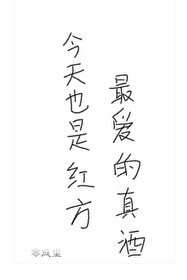 今天也是红方
最爱的真酒
零成尘